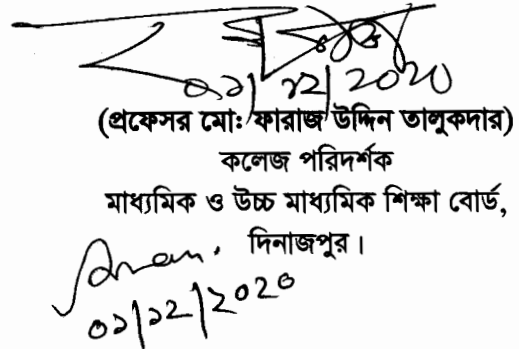 ০১/১২/২০২০
(প্রফেসর মো: ফারাজ উদ্দিন তালুকদার)
কলেজ পরিদর্শক
মাধ্যমিক ও উচ্চ মাধ্যমিক শিক্ষা বোর্ড,
দিনাজপুর।
০১/১২/২০২০